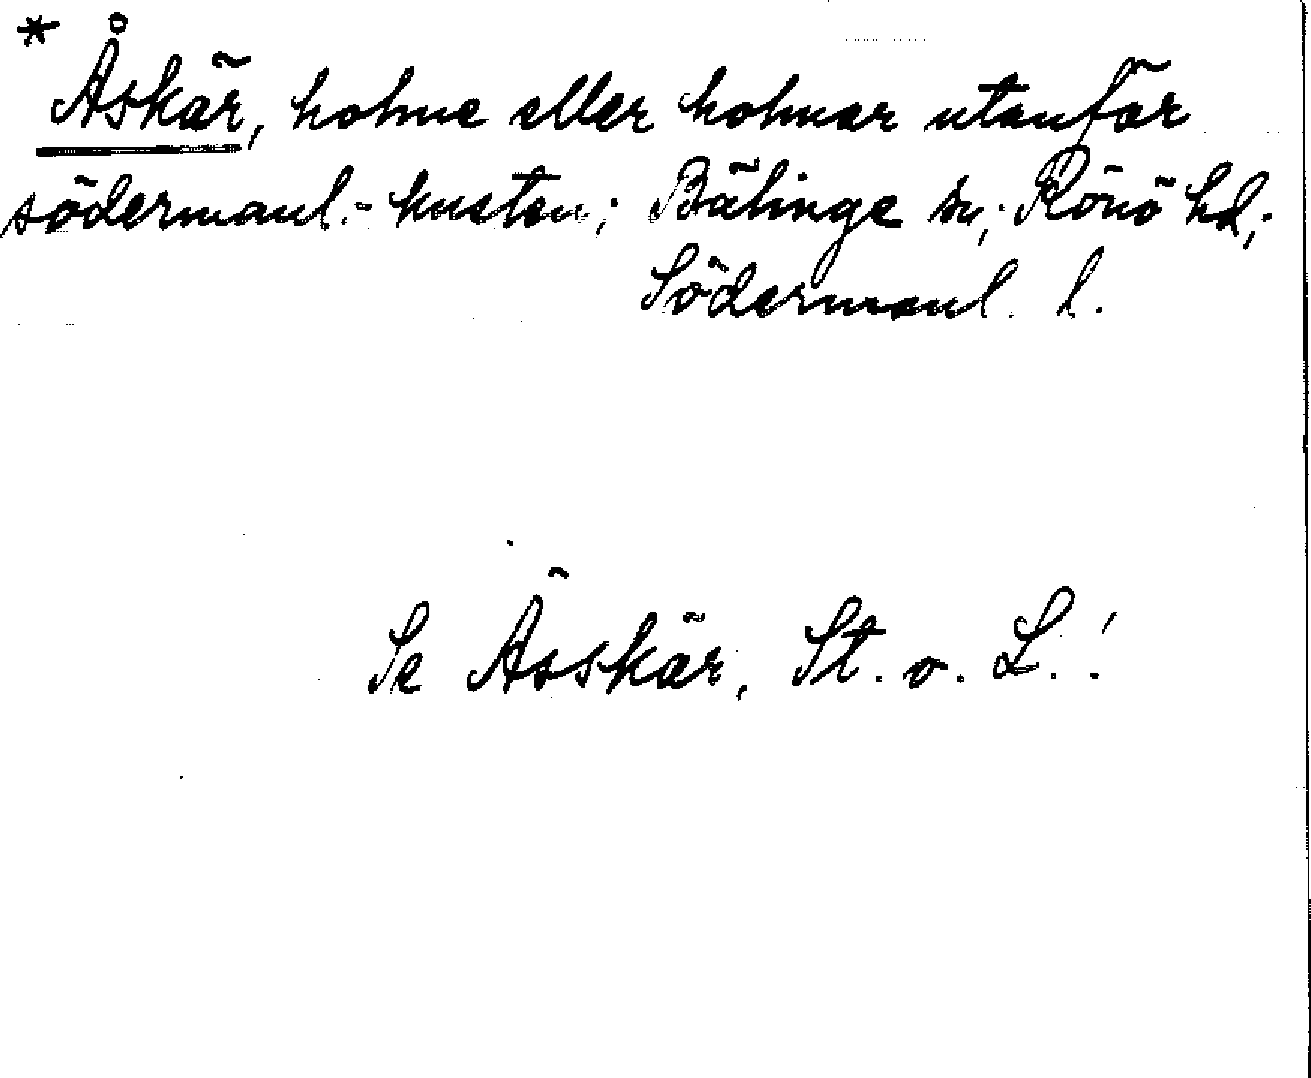 * Åskär, holme eller holmar utanför
södermanl.- kusten; Bälinge sn; Rönö hd;
Södermanl. l.
Se Ässkär, St. o. L.!